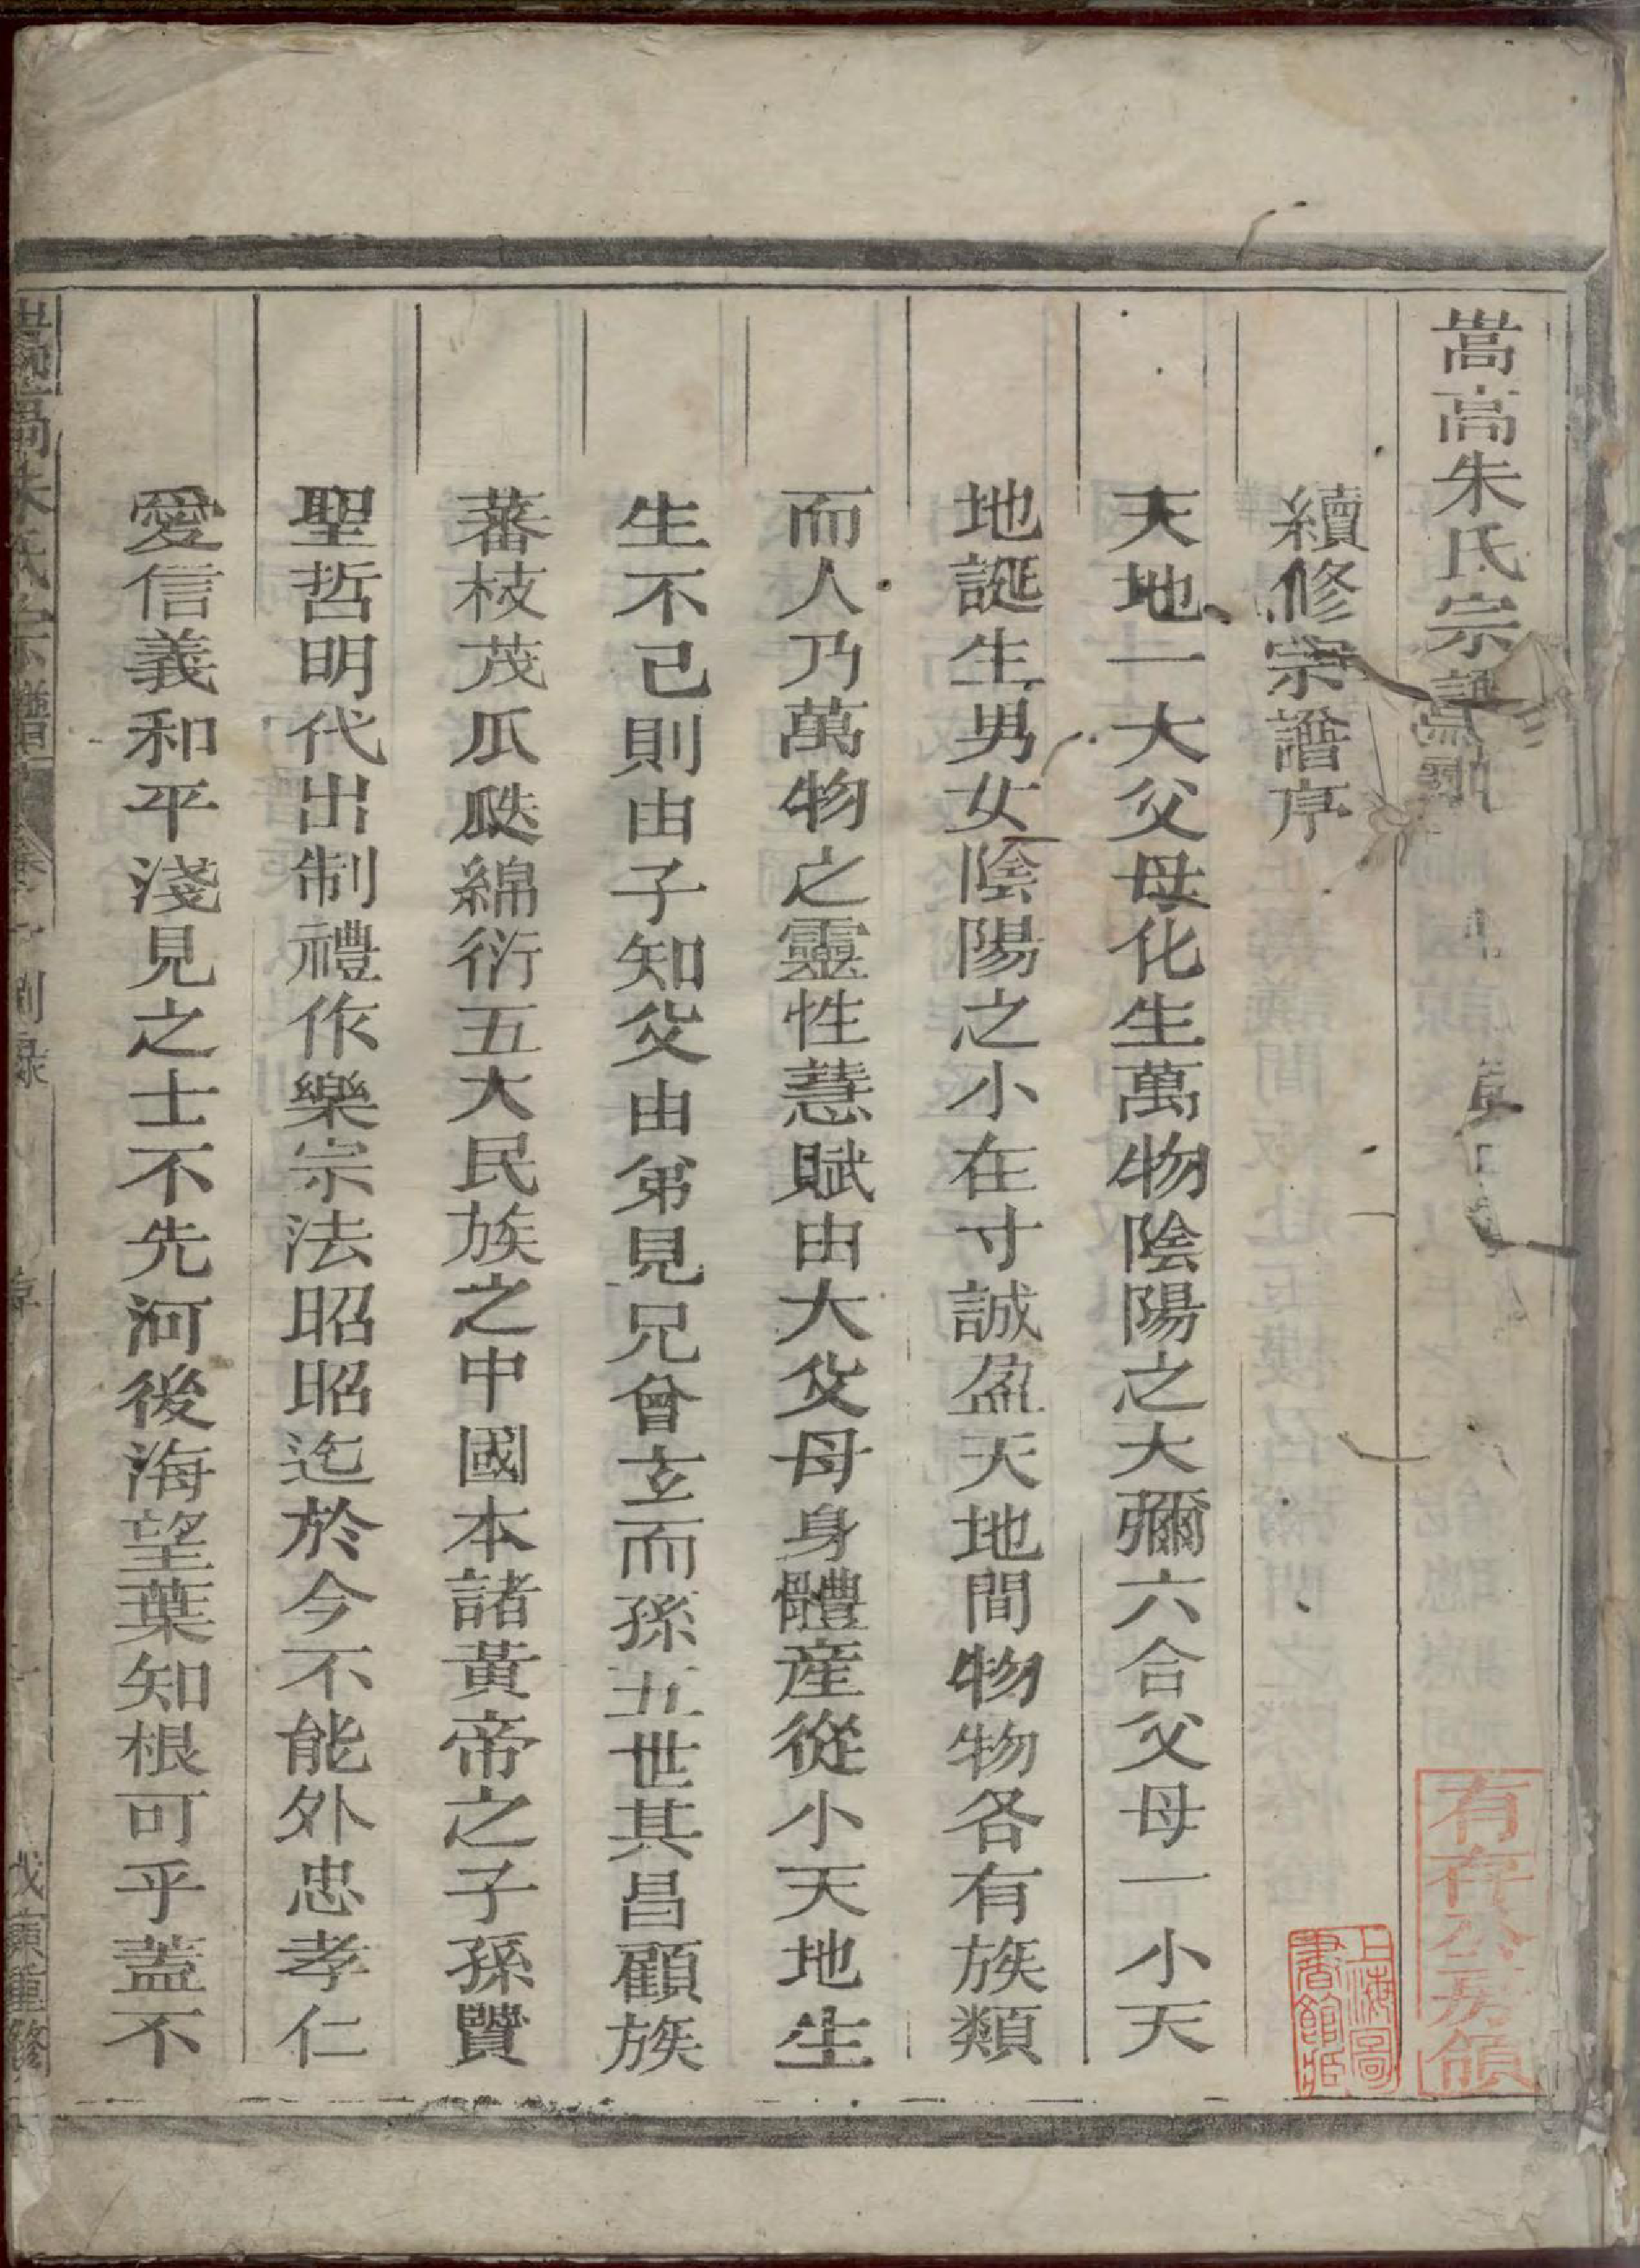 嵩高朱氏宗譜
有存公房領
續修宗譜序
上海圖書館藏
天地一大父母化生萬物陰陽之大彌六合父母一小天
地誕生男女陰陽之小在寸誠盈天地間物物各有族類
而人乃萬物之靈性慧賦由大父母身體產從小天地生
生不己則由子知父由弟見兄曾玄而孫五世其昌顧族
蕃枝茂瓜瓞綿衍五大民族之中國本諸黃帝之子孫賢
聖哲明代出制禮作樂宗法昭昭迄於今不能外忠孝仁
愛信義和平淺見之士不先河後海望葉知根可乎蓋不
嵩高朱氏宗譜
序
重修